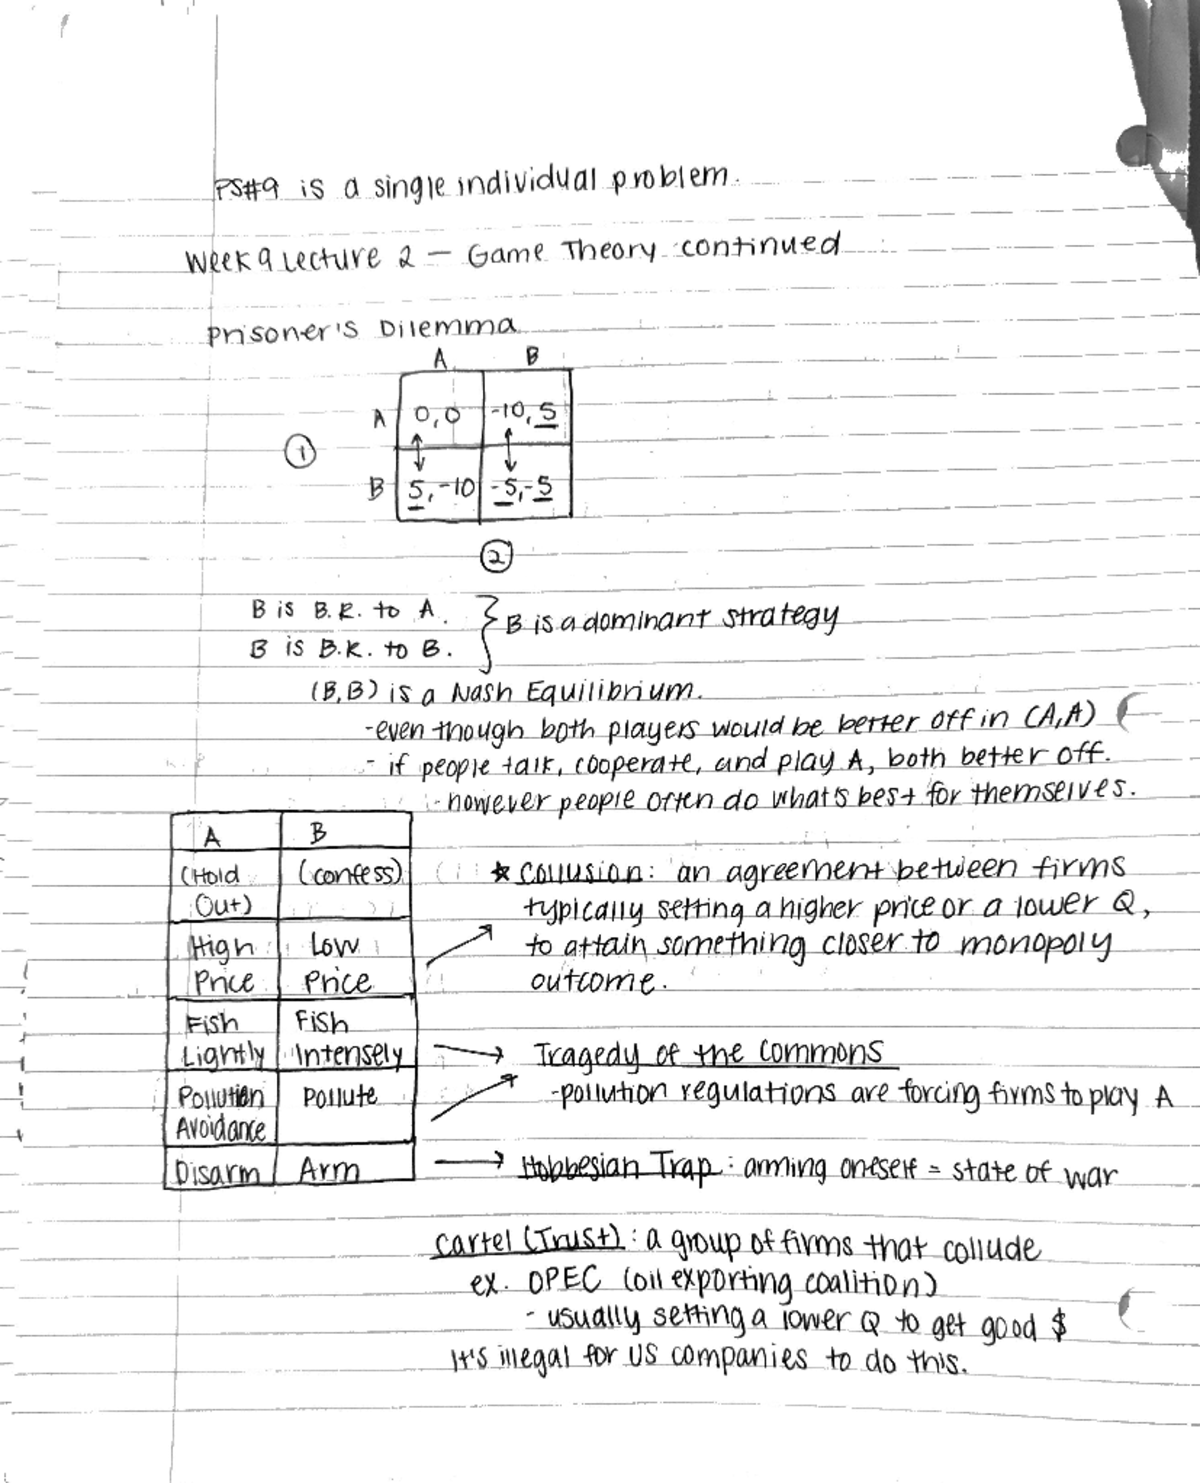 PS#9 is a single individual problem.
Week 9 Lecture 2 — Game Theory continued
Prisoner's Dilemma
A B
A 0,0 -10,5
①
B 5,-10 -5,-5
②
B is B.R. to A. } B is a dominant strategy
B is B.R. to B.
(B,B) is a Nash Equilibrium.
-even though both players would be better off in (A,A)
- if people talk, cooperate, and play A, both better off.
- however people often do what's best for themselves.
A B
(Hold (confess)
Out)
★ Collusion: an agreement between firms
typically setting a higher price or a lower Q,
High Low
to attain something closer to monopoly
Price Price
outcome.
Fish Fish
Lightly Intensely → Tragedy of the Commons
Pollution Pollute
-pollution regulations are forcing firms to play A
Avoidance
Disarm Arm → Hobbesian Trap: arming oneself = state of war
Cartel (Trust): a group of firms that collude
ex. OPEC (oil exporting coalition)
- usually setting a lower Q to get good $
It's illegal for US companies to do this.